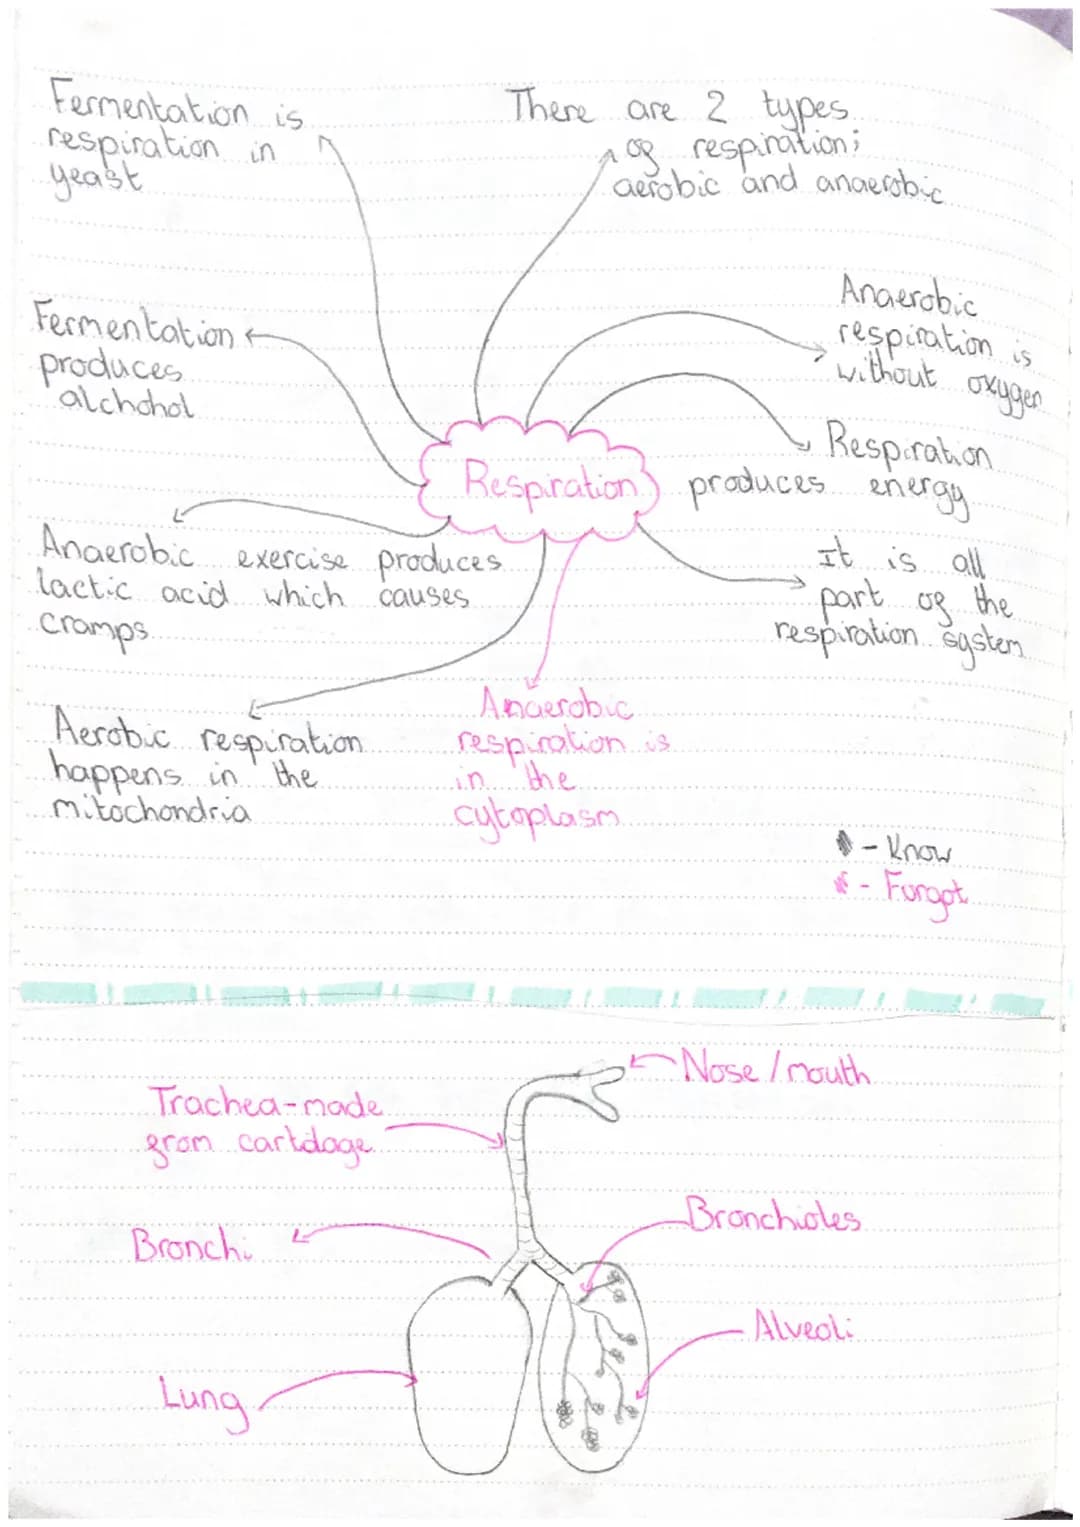 Fermentation is
respiration in
yeast
There are 2 types
of respiration;
aerobic and anaerobic
Anaerobic
respiration is
without oxygen
Fermentation
produces
alchohol
Respiration
produces energy
Respiration
Anaerobic exercise produces
lactic acid which causes
cramps
It is all
part of the
respiration system
Aerobic respiration
happens in the
mitochondria
Anaerobic
respiration is
in the
cytoplasm
- Know
- Forgot
Nose / mouth
Trachea - made
from cartilage
Bronchioles
Bronchi
Alveoli
Lung